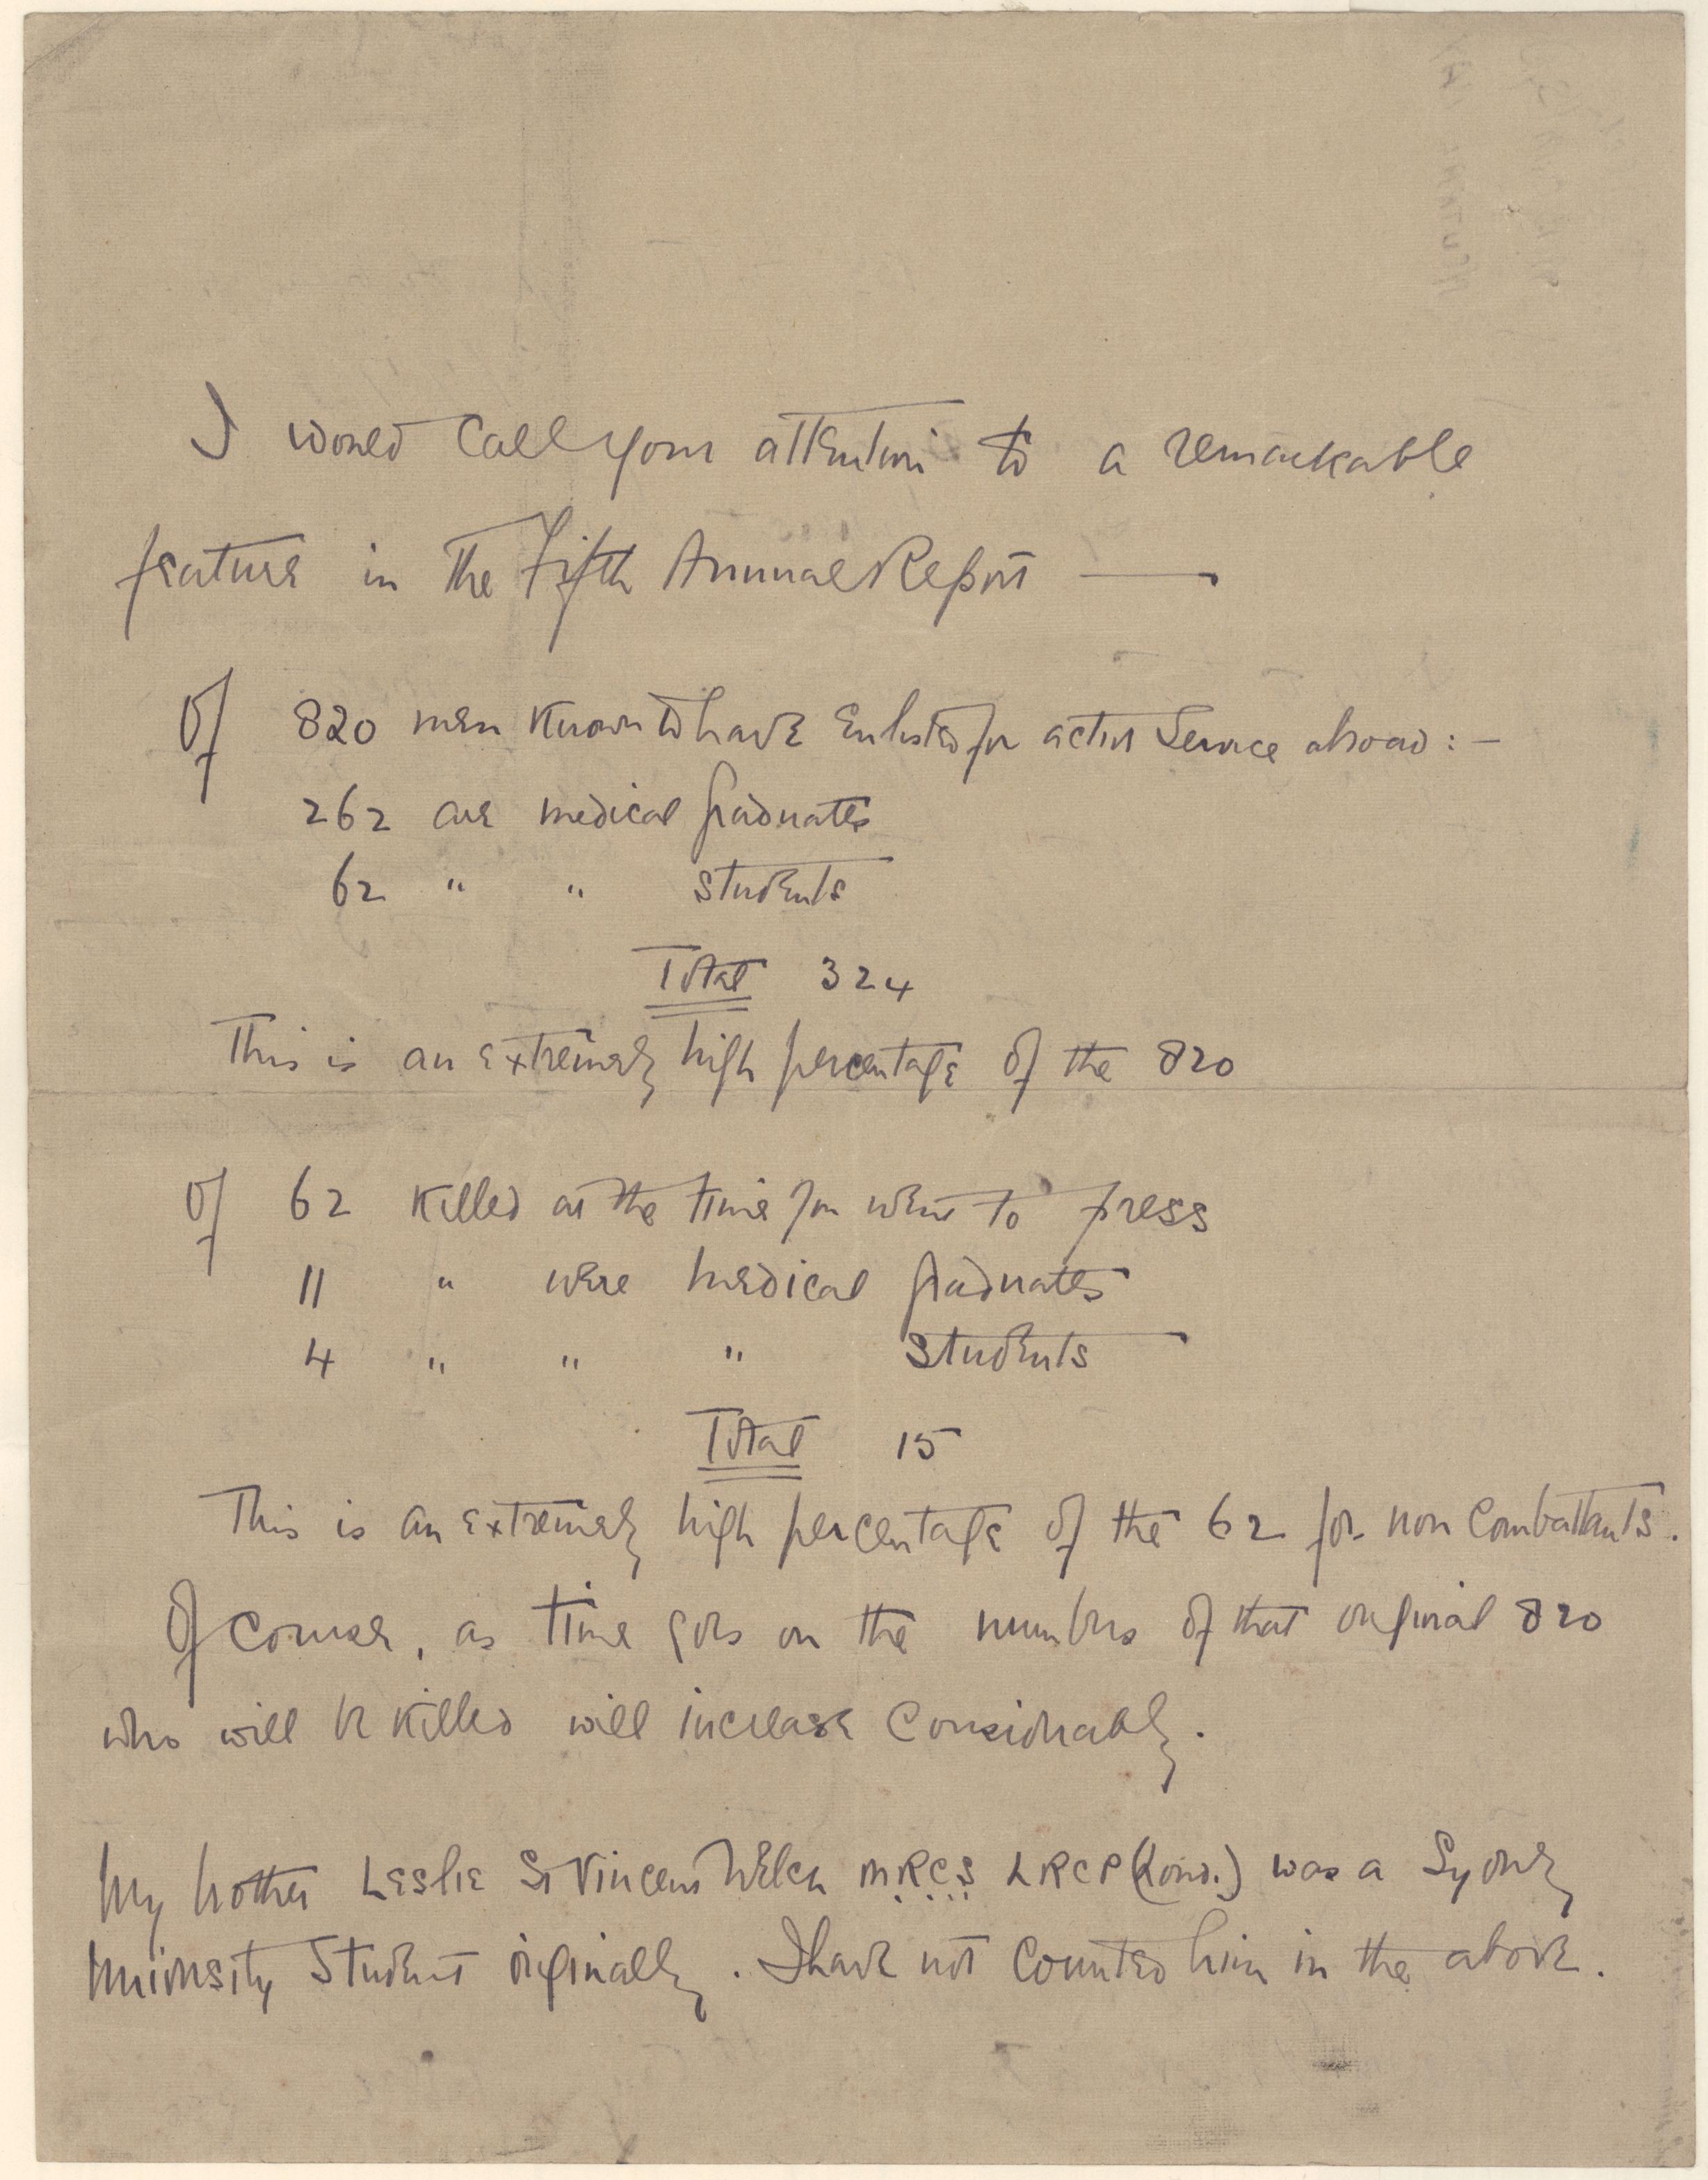 I would call your attention to a remarkable
feature in the Fifth Annual Report —
Of 820 men known to have enlisted for active service abroad :-
262 are medical graduates
62 " " students
Total 324
This is an extremely high percentage of the 820
Of 62 killed at the time you went to press
11 " were medical graduates
4 " " " students
Total 15
This is an extremely high percentage of the 62 for non combattants.
Of course, as time goes on the numbers of that original 820
who will be killed will increase considerably.
My brother Leslie St Vincent Welch MRCS LRCP (Lond.) was a Sydney
University Student originally. I have not counted him in the above.